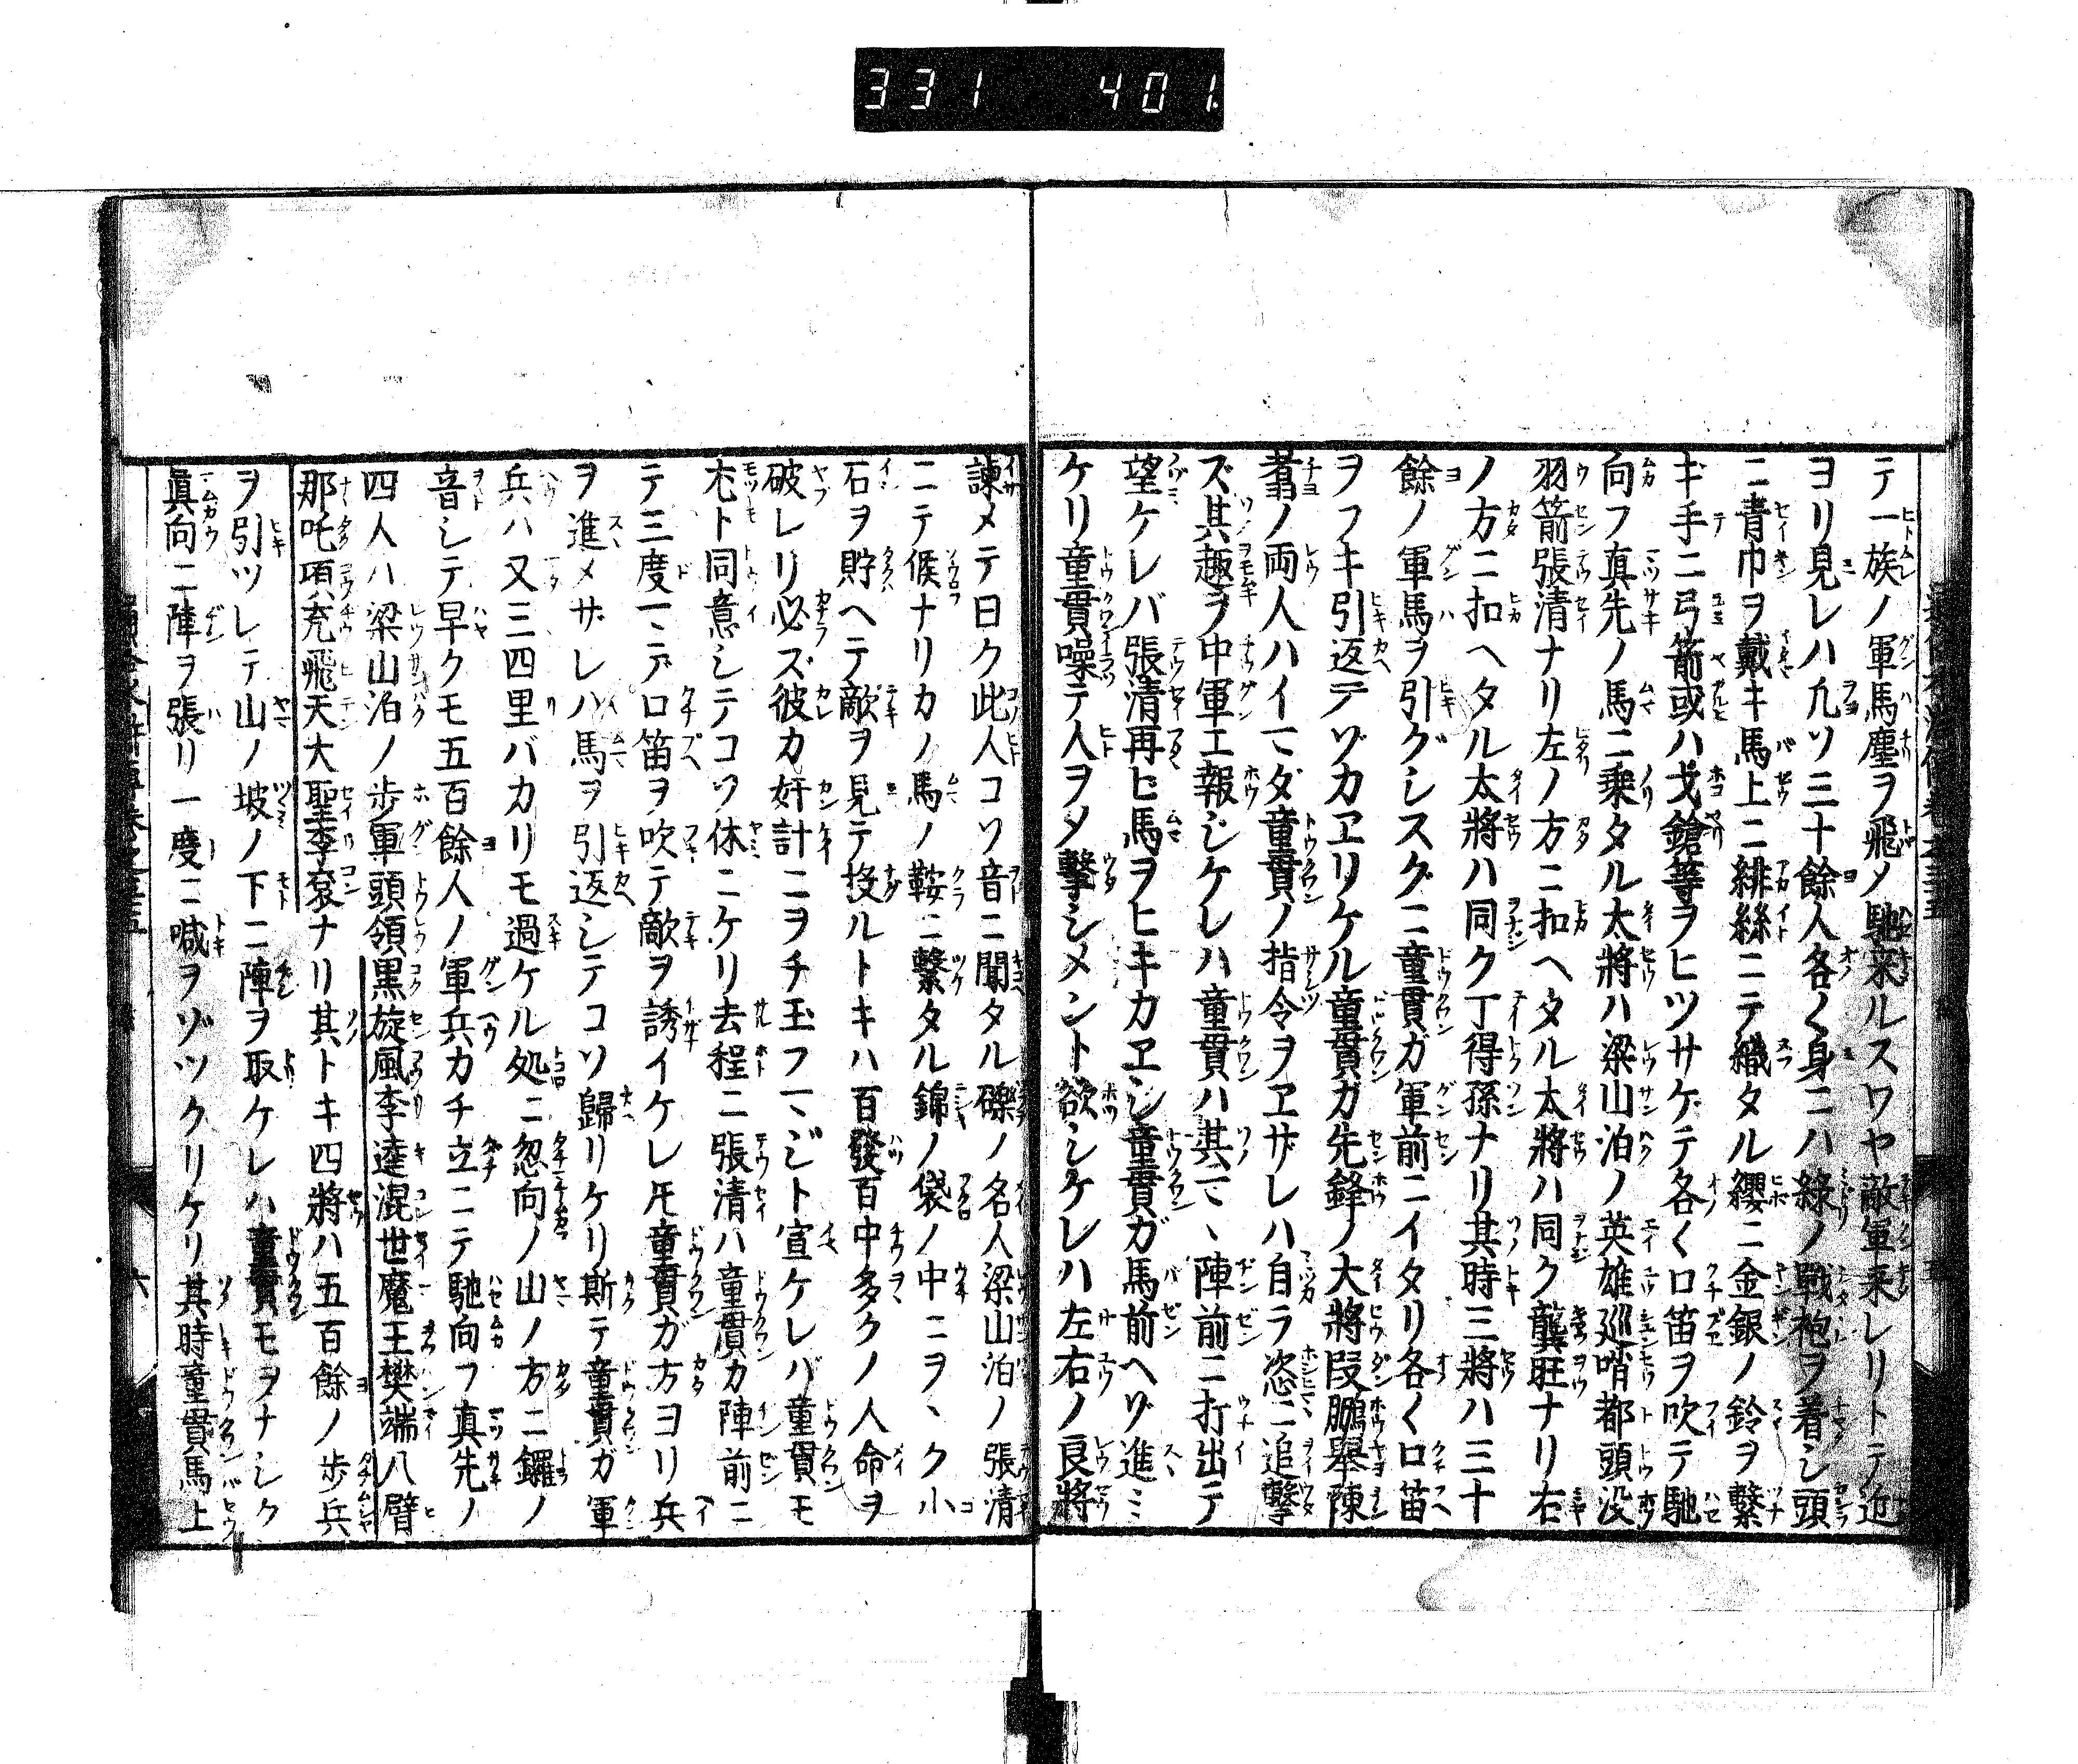 331 401
テ一族ノ軍馬塵ヲ飛メ馳来ルスワヤ敵軍来レリトテ近
ヨリ見レハ凢ソ三十餘人各く身ニハ綠ノ戰袍ヲ着シ頭
ニ青巾ヲ戴キ馬上ニ緋絲ニテ織タル纓ニ金銀ノ鈴ヲ繫
ギ手ニ弓箭或ハ戈鎗等ヲヒツサゲテ各く口笛ヲ吹テ馳
向フ真先ノ馬ニ乗タル太將ハ梁山泊ノ英雄廵哨都頭没
羽箭張清ナリ左ノ方ニ扣ヘタル太將ハ同ク龔旺ナリ右
ノ方ニ扣ヘタル太將ハ同ク丁得孫ナリ其時三將ハ三十
餘ノ軍馬ヲ引グシスグニ童貫ガ軍前ニイタリ各く口笛
ヲフキ引返テゾカヱリケル童貫ガ先鋒ノ大將段鵬舉陳
翥ノ両人ハイマダ童貫ノ指令ヲヱザレハ自ラ恣ニ追擊
ズ其趣ヲ中軍エ報シケレハ童貫ハ其マヽ陣前ニ打出テ
望ケレバ張清再ビ馬ヲヒキカヱシ童貫ガ馬前ヘゾ進ミ
ケリ童貫噪テ人ヲメ擊シメント欲シケレハ左右ノ良將
諫メテ曰ク此人コソ音ニ聞タル礫ノ名人梁山泊ノ張清
ニテ候ナリカノ馬ノ鞍ニ繫タル錦ノ袋ノ中ニヲヽク小
石ヲ貯ヘテ敵ヲ見テ投ルトキハ百發百中多クノ人命ヲ
破レリ必ズ彼カ奸計ニヲチ玉フヿジト宣ケレバ童貫モ
尤ト同意シテコソ休ニケリ去程ニ張清ハ童貫カ陣前ニ
テ三度マデ口笛ヲ吹テ敵ヲ誘イケレ𪜈童貫ガ方ヨリ兵
ヲ進メサレハ馬ヲ引返シテコソ歸リケリ斯テ童貫ガ軍
兵ハ又三四里バカリモ過ケル処ニ忽向ノ山ノ方ニ鑼ノ
音シテ早クモ五百餘人ノ軍兵カチ立ニテ馳向フ真先ノ
四人ハ梁山泊ノ歩軍頭領黒旋風李逵混世魔王樊端八臂
那吒項充飛天大聖李袞ナリ其トキ四將ハ五百餘ノ歩兵
ヲ引ツレテ山ノ坡ノ下ニ陣ヲ取ケレハ童貫モヲナシク
眞向ニ陣ヲ張リ一度ニ喊ヲゾツクリケリ其時童貫馬上
六